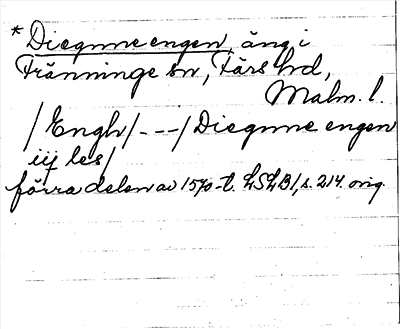 * Diegnne engen, äng i
Tränninge sn, Färs hd,
Malm. l.
/Engh/ - - - / Diegnne engen
iij les/
förra delen av 1570-t. LSLB1, s. 214. orig.